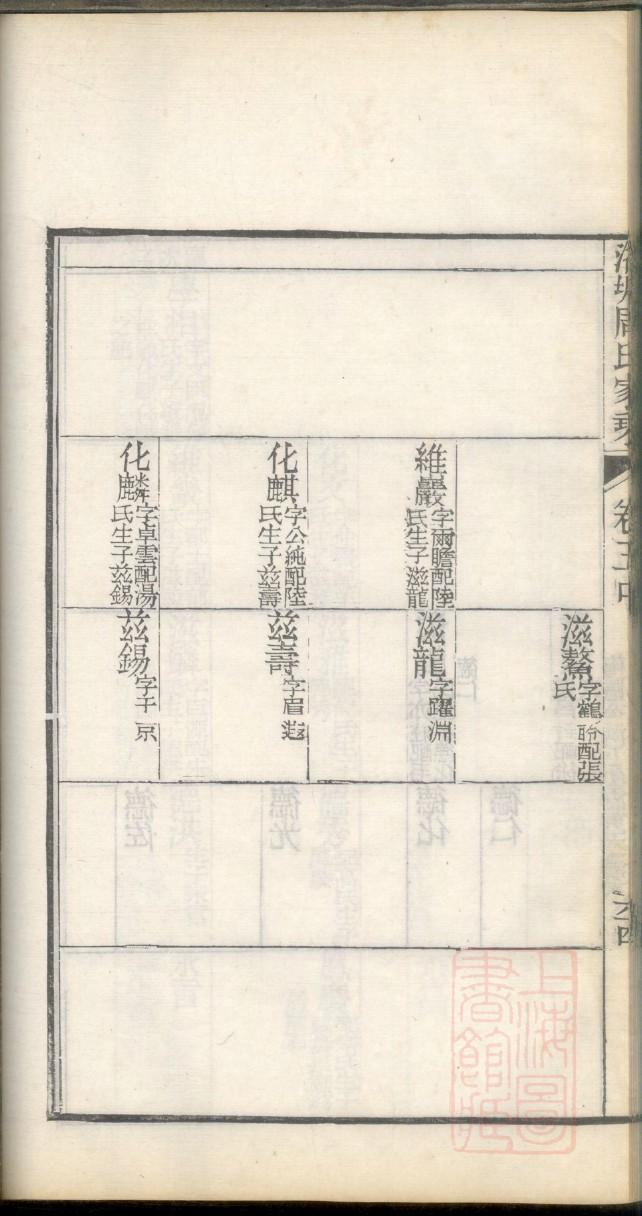 周氏家乘
卷五中
六四
滋鰲字鶴聆配張氏
維嚴字爾瞻配陸氏生子滋龍
滋龍字躍淵
化麒字公純配陸氏生子茲壽
茲壽字眉遐
化麟字卓雲配湯氏生子茲錫
茲錫字千京
上海圖書館藏